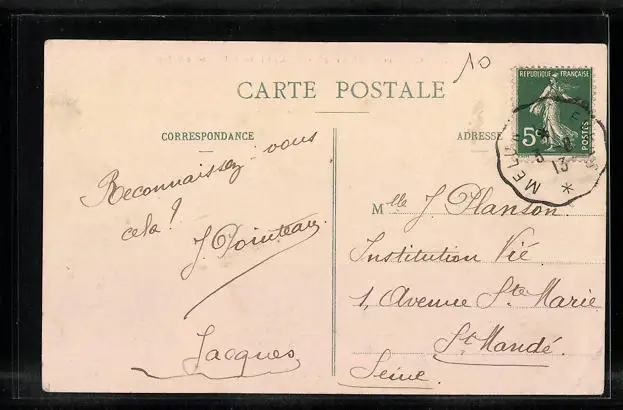 10
CARTE POSTALE
REPUBLIQUE FRANÇAISE
5c
POSTES
13
CORRESPONDANCE
ADRESSE
Reconnaissez-vous
cela?
J. Pointeau
Jacques
Mlle J. Planson.
Institution Vié
1, Avenue Ste Marie
St Mandé.
Seine.